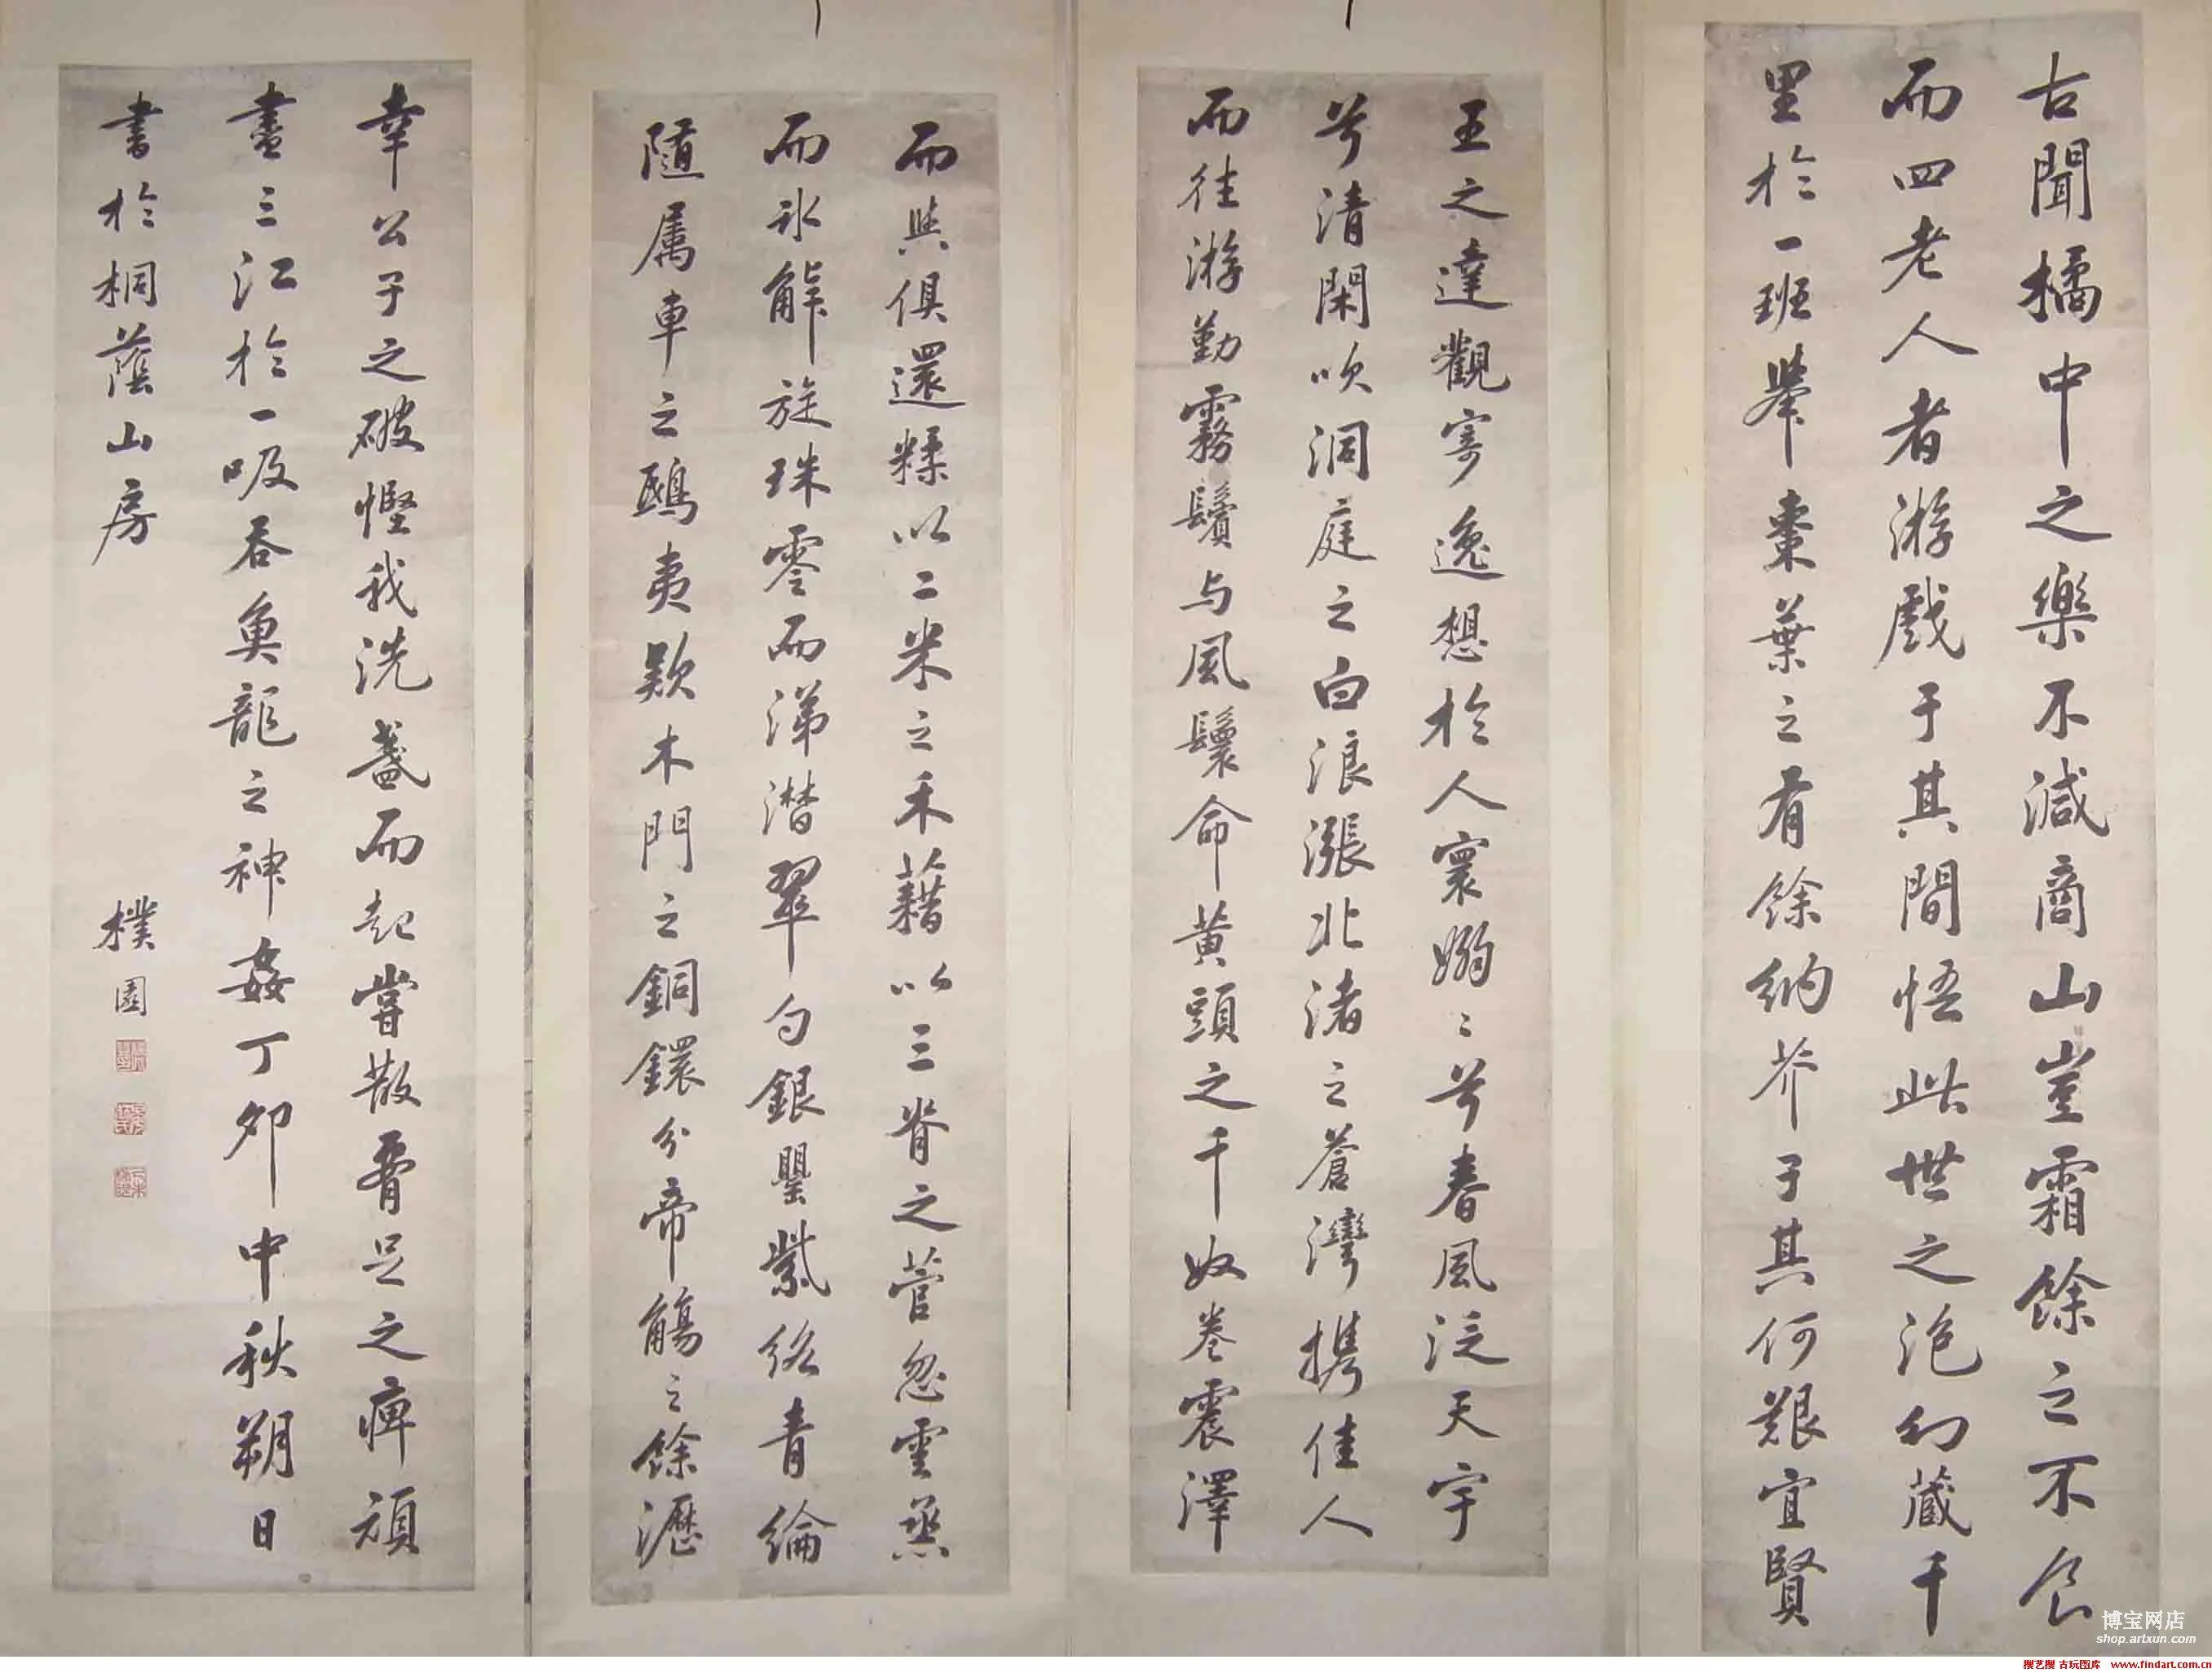 古聞橘中之樂不減商山豈霜餘之不食
而四老人者游戲于其間悟此世之泡幻藏千
里於一班舉棗葉之有餘納芥于其何艱宜賢
王之達觀寄逸想於人寰嫋〻兮春風泛天宇
兮清閑吹洞庭之白浪漲北渚之蒼灣携佳人
而往游勤霧鬢与風鬟命黄頭之千奴卷震澤
而與俱還糅以二米之禾藉以三脊之菅忽雲烝
而氷解旋珠零而涕潸翠勺銀罌紫絡青綸
隨属車之鴟夷款木門之銅鐶分帝觴之餘瀝
幸公子之破慳我洗盞而起嘗散腰足之痺頑
盡三江於一吸吞魚龍之神姦丁卯中秋朔日
書於桐蔭山房
樸園
博宝网店
shop.artxun.com
搜艺搜 古玩图库 www.findart.com.cn